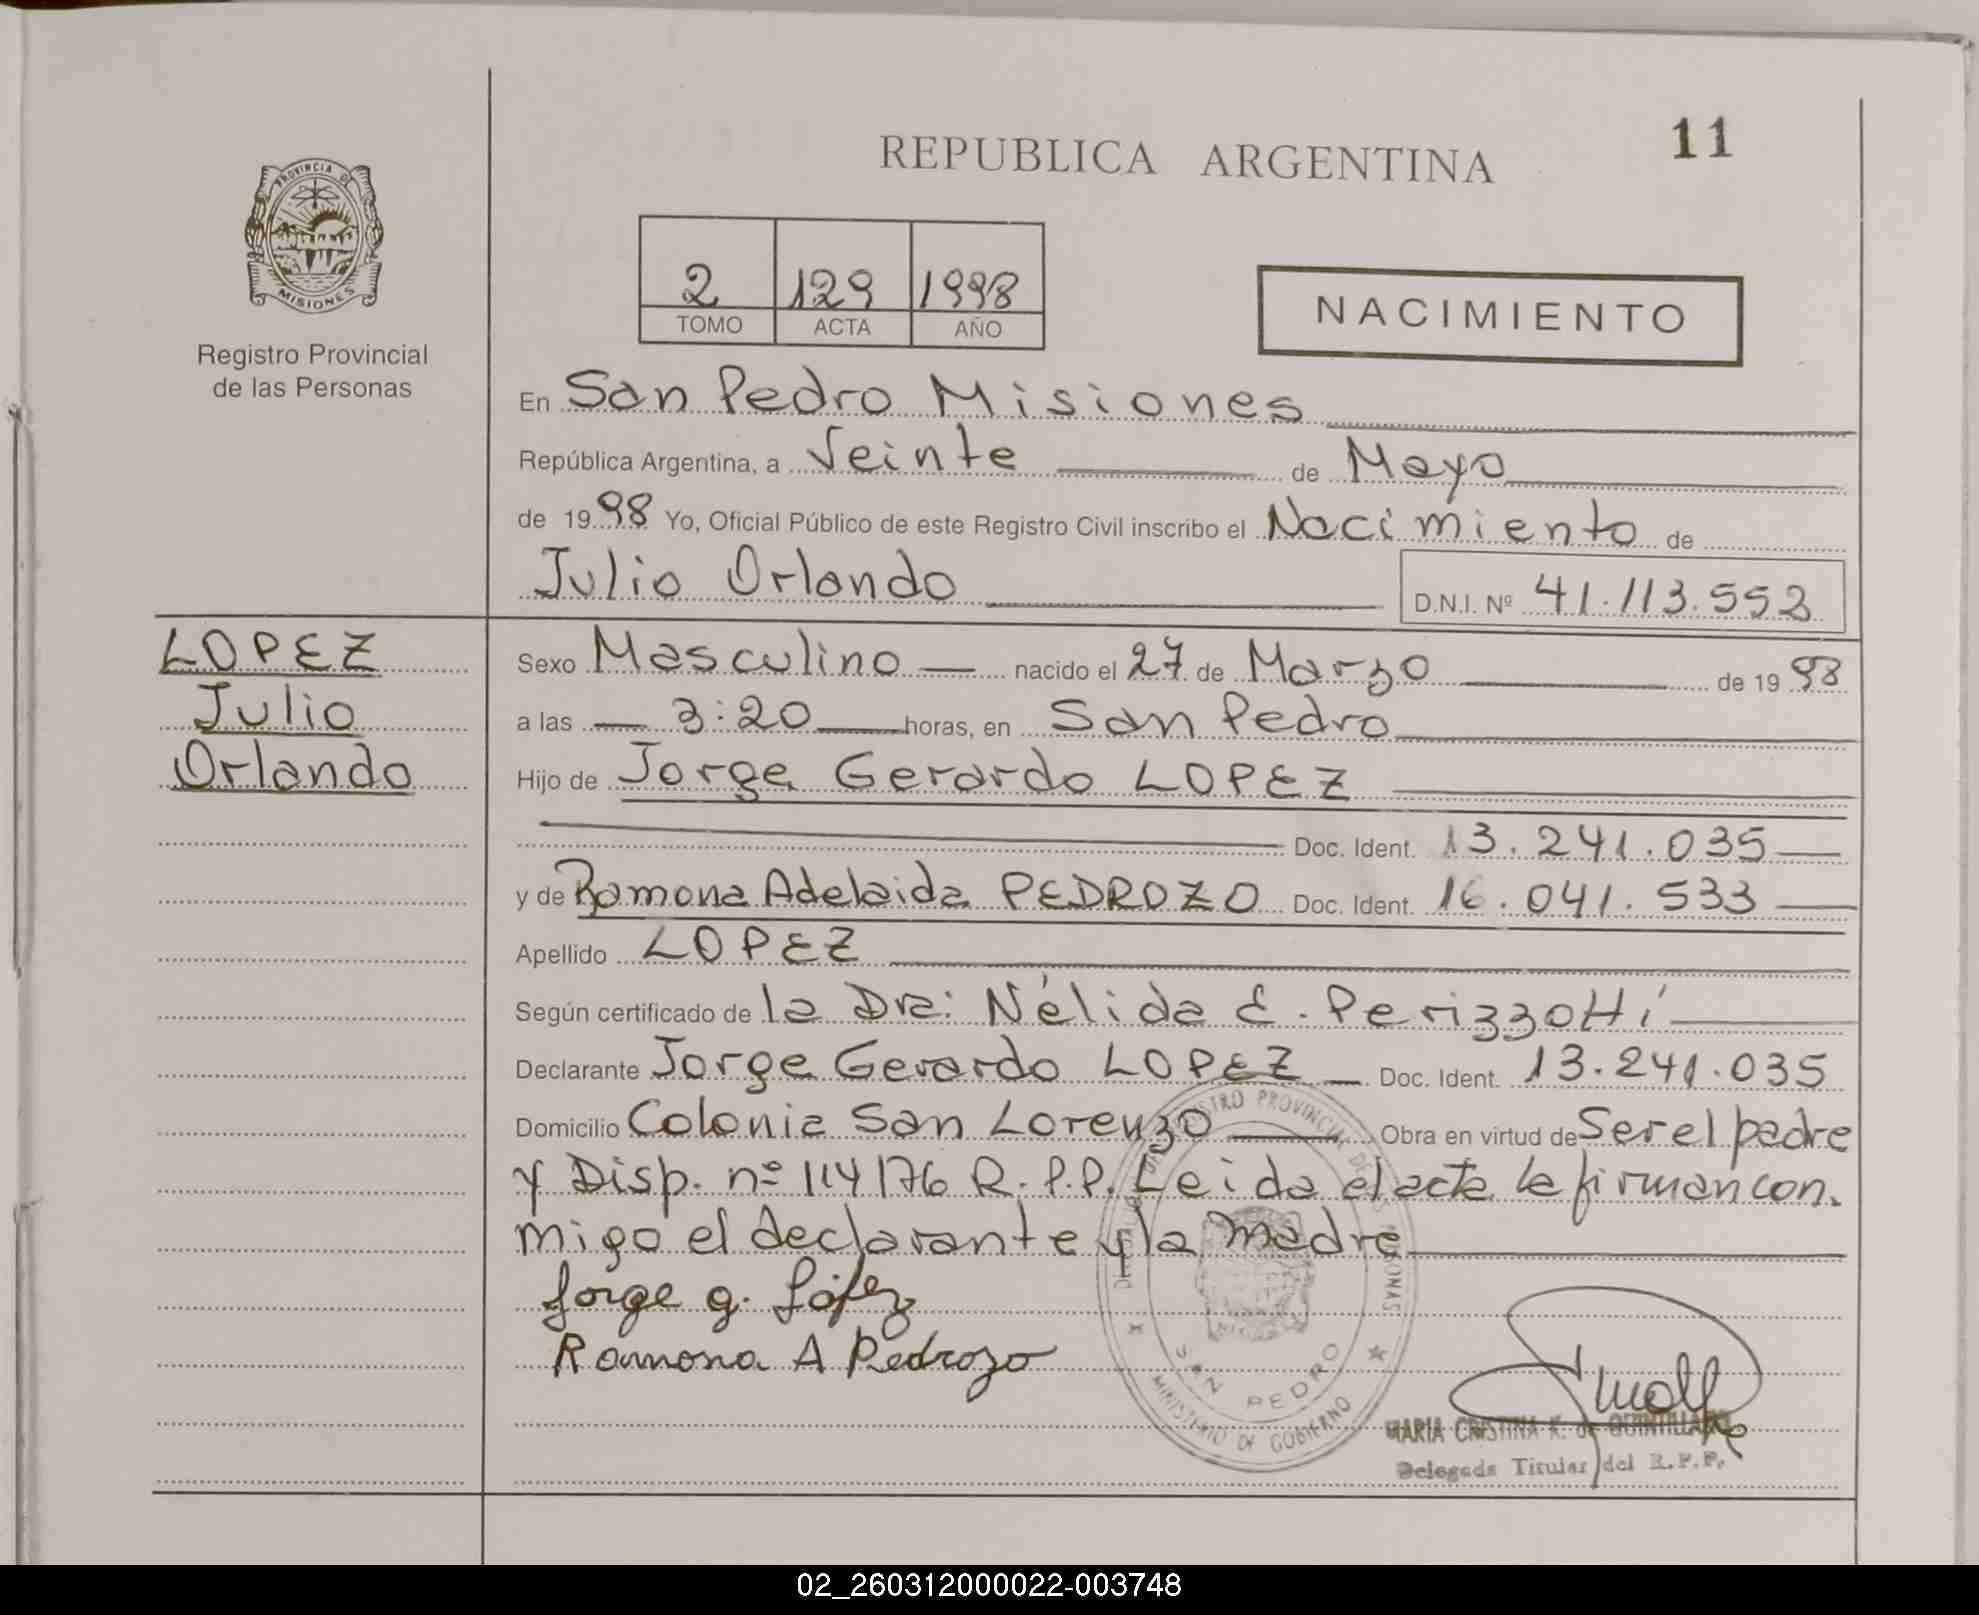 REPUBLICA ARGENTINA
11
PROVINCIA DE
MISIONES
Registro Provincial
de las Personas
2 129 1998
TOMO ACTA AÑO
NACIMIENTO
En San Pedro Misiones
República Argentina, a Veinte de Mayo
de 1998 Yo, Oficial Público de este Registro Civil inscribo el Nacimiento de
Julio Orlando D.N.I. Nº 41.113.552
LOPEZ
Julio
Orlando
Sexo Masculino nacido el 27 de Marzo de 1998
a las 3:20 horas, en San Pedro
Hijo de Jorge Gerardo LOPEZ
Doc. Ident. 13.241.035
y de Ramona Adelaida PEDROZO Doc. Ident. 16.041.533
Apellido LOPEZ
Según certificado de la Dra: Nélida E. Perizzotti
Declarante Jorge Gerardo LOPEZ Doc. Ident. 13.241.035
Domicilio Colonia San Lorenzo Obra en virtud de Ser el padre
y Disp. nº 114176 R.P.P. Leida el acta la firman con.
migo el declarante y la madre
Jorge G. López
Ramona A Pedrozo
REGISTRO PROVINCIAL DE LAS PERSONAS
SAN PEDRO
MINISTERIO DE GOBIERNO
MARIA CRISTINA K. de QUINTILLA
Delegada Titular del R.P.P.
02_260312000022-003748